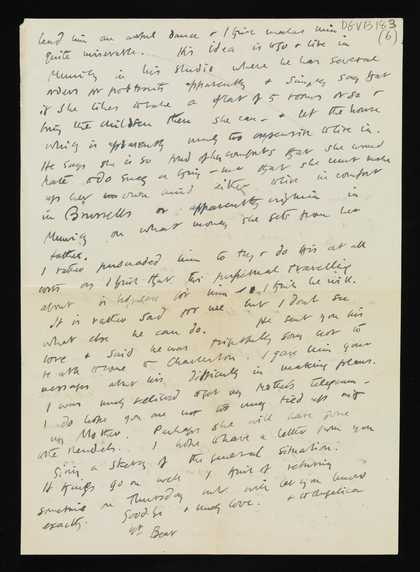 DGVB183
(6)
lead him an awful dance & I think makes him
quite miserable. His idea is to go & live in
Munich in his studio where he has several
orders for portraits apparently & simply say that
if she likes to take a flat of 5 rooms or so &
bring the children then she can – & let the house
which is apparently much too expensive to live in.
He says she is so fond of her comforts that she would
hate to do such a thing – and that she must make
up her own mind either to live in comfort
in Brussells or apparently in
Munich on what money she gets from her
father.
I rather persuaded him to try & do this at all
costs as I think that this perpetual travelling
about is hopeless for him – & I think he will.
It is rather sad for me but I don't see
what else he can do. He sent you his
love & said he was frightfully sorry not to
be able to come to Charleston. I gave him your
messages about his difficulty in making plans.
I was much relieved to get my Mother's telegram –
I do hope you are not too much tied up with
my Mother. Perhaps she will have gone
to the Rendels. I hope to have a letter from you
giving a sketch of the general situation.
If things go on well I think of returning
sometime on Thursday but will let you know
exactly. Goodbye & much love. & to Angelica
yr Bear